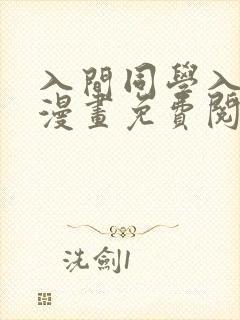 入間同學入
漫畫免費閱
洗劍1